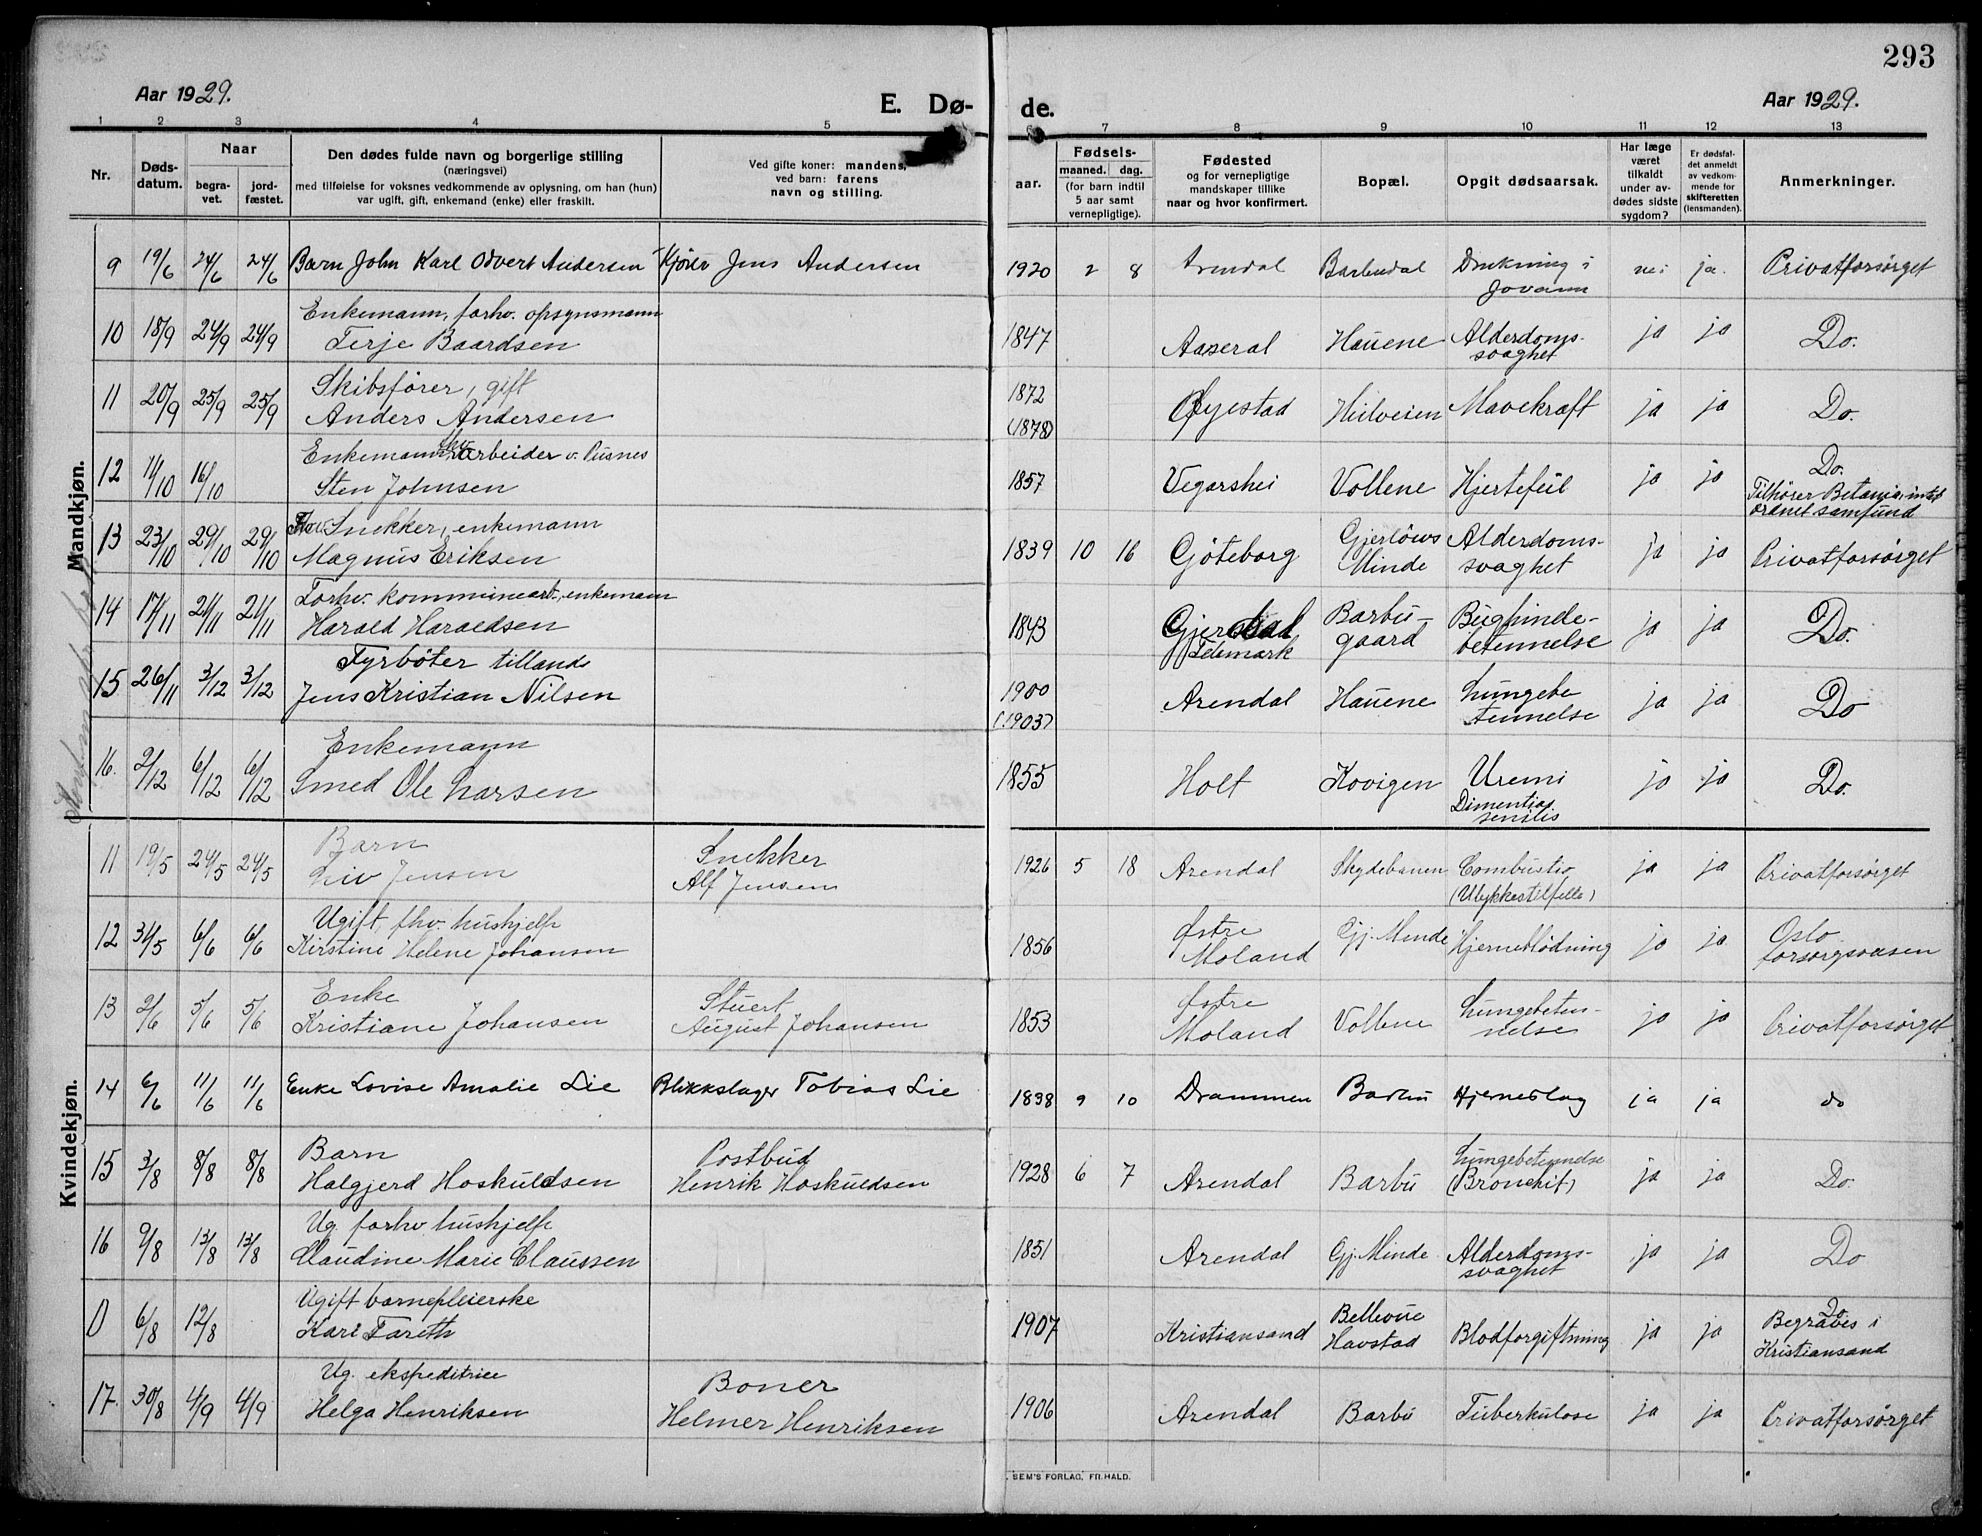 293
Aar 1929.
E. Dø-
de.
Aar 1929.
1 2 3 4 5 6 7 8 9 10 11 12 13
Nr.
Døds-
datum.
Naar
begra-
vet.
jord-
fæstet.
Den dødes fulde navn og borgerlige stilling
(næringsvei)
med tilføielse for voksnes vedkommende av oplysning, om han (hun)
var ugift, gift, enkemand (enke) eller fraskilt.
Ved gifte koner: mandens,
ved barn: farens
navn og stilling.
Fødsels-
aar.
maaned. dag.
(for barn indtil
5 aar samt
vernepligtige).
Fødested
og for vernepligtige
mandskaper tillike
naar og hvor konfirmert.
Bopæl.
Opgit dødsaarsak.
Har læge
været
tilkaldt
under av-
dødes sidste
sygdom?
Er dødsfal-
det anmeldt
av vedkom-
mende for
skifteretten
(lensmanden).
Anmerkninger.
Mandkjøn.
9 19/6 24/6 24/6 Barn John Karl Odvert Andersen Jens Andersen 1920 2 8 Arendal Barbudal Drukning i nei ja. Privatforsørget
10 18/9 24/9 24/9 Enkemann, forhv. opsynsmann
Terje Baardsen 1847 Aaseral Hauene Alderdoms-
svaghet ja ja Do.
11 20/9 25/9 25/9 Skibsfører, gift
Anders Andersen 1872
(1878) Øyestad Mavekræft ja ja Do.
12 11/10 16/10 Enkemann, fhv. arbeider v. Pusnes
Sten Johnsen 1857 Vegarshei Vollene Hjertefeil ja ja Do.
Tilhører Betania, intet
ordnet samfund
13 23/10 29/10 29/10 Fhv. Snekker, enkemann
Magnus Eriksen 1839 10 16 Göteborg Gjerløws
Minde Alderdoms-
svaghet ja ja Privatforsørget
14 17/11 21/11 21/11 Forhv. kommunearb., enkemann
Harald Haraldsen 1843 Telemark Barbu-
gaard Bughinde-
betennelse ja ja Do.
15 26/11 3/12 3/12 Fyrbøter tillands
Jens Kristian Nilsen 1900
(1903) Arendal Hauene Lungebe
tennelse ja ja Do
16. 2/12 6/12 6/12 Enkemann
Smed Ole Larsen 1855 Holt Kovigen Uremi
Dimentia
senilis ja ja Do.
Kvindekjøn.
11 19/5 24/5 24/5 Barn
Liv Jensen Snekker
Alf Jensen 1926 5 18 Arendal Skydebanen Combustio
(Ulykkestilfelle) ja ja Privatforsørget
12 31/5 6/6 6/6 Ugift, fhv. hushjelp
Kirstine Helene Johansen 1856 Østre
Moland Gj. Minde Hjerneblødning ja ja Oslo
forsorgsvæsen
13 2/6 5/6 5/6 Enke
Kristiane Johansen Stuert
August Johansen 1853 Østre
Moland Vollene Lungebeten-
nelse ja ja Privatforsørget
14 6/6 11/6 11/6 Enke Lovise Amalie Lie Blikkslager Tobias Lie 1838 9 10 Drammen Barbu Hjerneslag ja ja do
15 3/8 8/8 8/8 Barn
Halgjerd Hoskuldsen Postbud
Henrik Hoskuldsen 1928 6 7 Arendal Barbu Lungebetennelse
(Bronchit) ja ja Do.
16 9/8 13/8 13/8 Ug. forhv hushjelp
Claudine Marie Claussen 1851 Arendal Gj. Minde Alderdoms-
svaghet ja ja Do
0 6/8 12/8 Ugift barnepleierske
Kari Fareth 1907 Kristiansand Bellevue
Havstad Blodforgiftning ja ja Do
Begraves i
Kristiansand
17. 30/8 4/9 4/9 Ug. ekspeditrice
Helga Henriksen Boner
Helmer Henriksen 1906 Arendal Barbu Tuberkulose ja ja Privatforsørget
SEM'S FORLAG, FR.HALD.